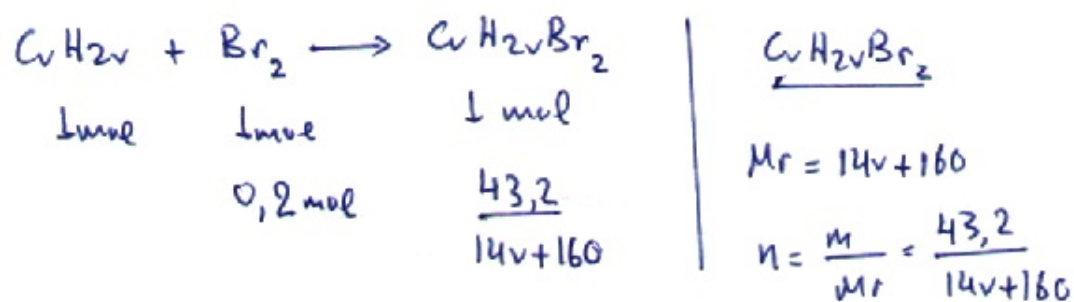 CνH2ν + Br2 → CνH2νBr2
1mol 1mol 1 mol
0,2 mol 43,2/14ν+160
CνH2νBr2
Mr = 14ν+160
n = m/Mr = 43,2/14ν+160